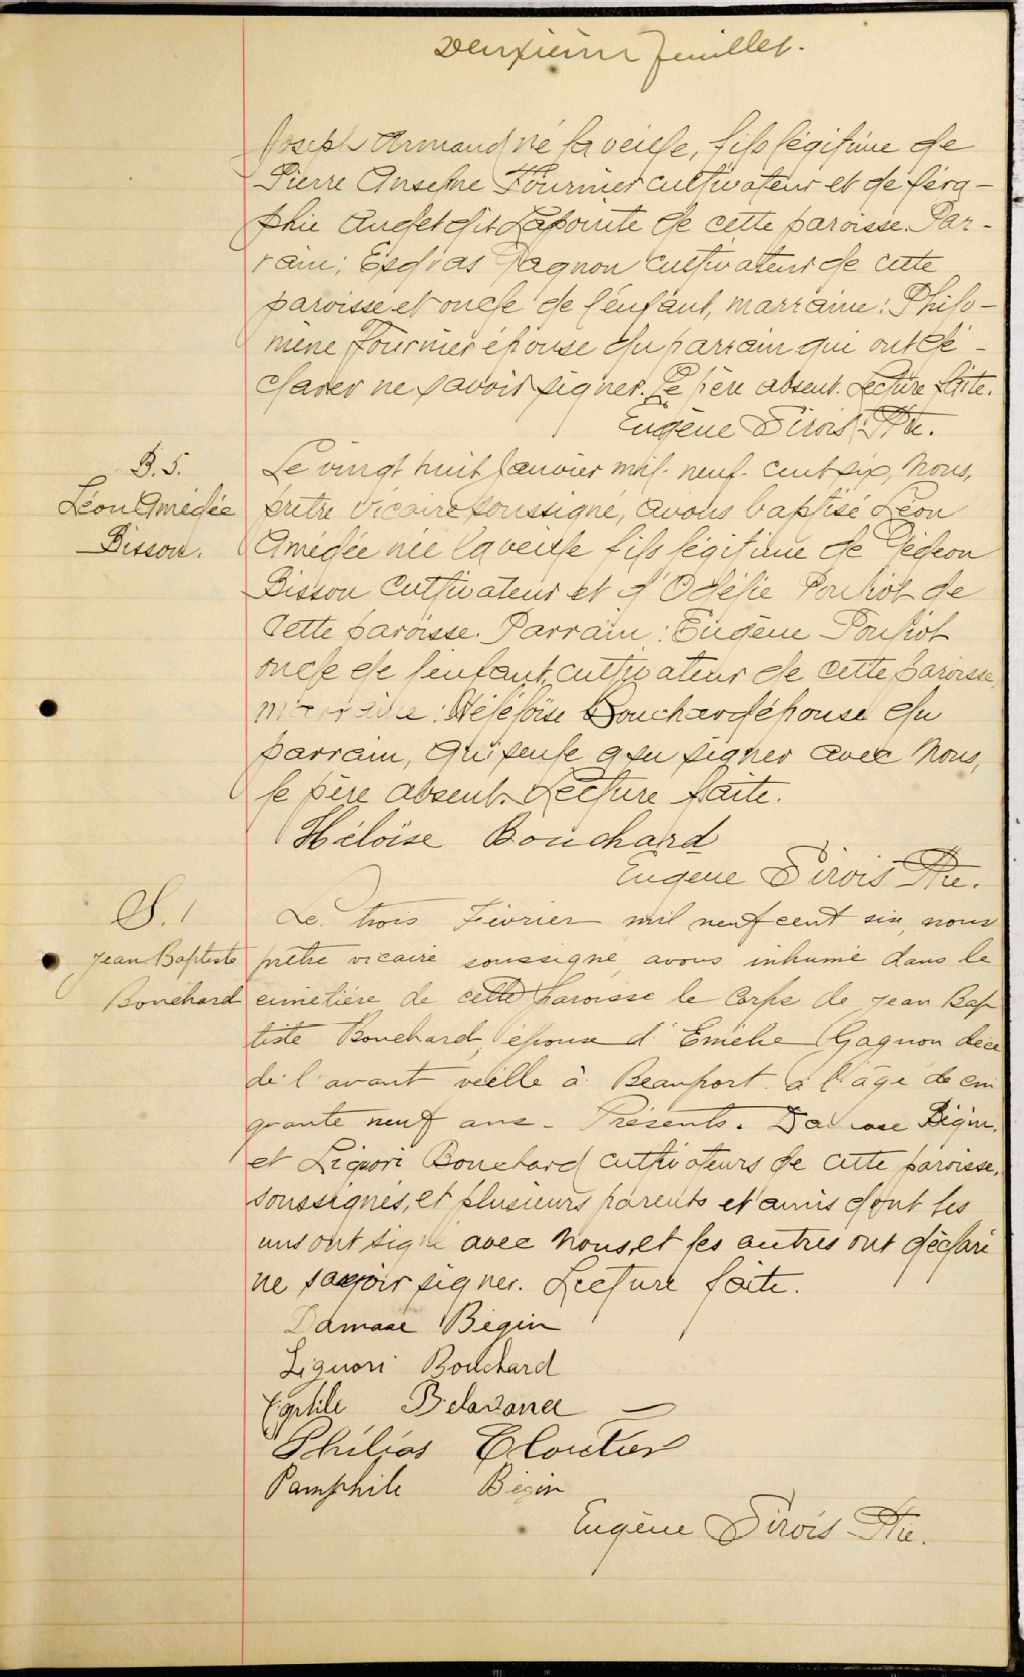 Deuxième feuillet.
Joseph Armand né la veille, fils légitime de
Pierre Anselme Fournier cultivateur et de Séra-
phie Audet dit Lapointe de cette paroisse. Par-
rain: Esdras Gagnon cultivateur de cette
paroisse et oncle de l'enfant, marraine: Philo-
mène Fournier épouse du parrain qui ont dé-
clarer ne savoir signer. Le père absent. Lecture faite.
Eugène Sirois Ptre.
B. 5.
Léon Amédée
Bisson.
Le vingt huit Janvier mil-neuf-cent six, nous,
prêtre vicaire soussigné, avons baptisé Léon
Amédée née la veille fils légitime de Gédéon
Bisson cultivateur et d'Odélie Pouliot de
cette paroisse. Parrain: Eugène Pouliot
oncle de l'enfant, cultivateur de cette paroisse,
marraine: Héléloïse Bouchard épouse du
parrain, qui seule a su signer avec nous,
le père absent. Lecture faite.
Héloïse Bouchard
Eugène Sirois Ptre.
S. 1
Jean Baptiste
Bouchard
Le trois Février mil neuf cent six, nous
prêtre vicaire soussigné, avons inhumé dans le
cimetière de cette paroisse le corps de Jean Bap
tiste Bouchard, époux d'Emélie Gagnon décé
dé l'avant veille à Beauport à l'âge de cin
quante neuf ans. Présents. Damase Bégin,
et Liguori Bouchard cultivateurs de cette paroisse,
soussignés, et plusieurs parents et amis dont les
uns ont signé avec nous, et les autres ont déclaré
ne savoir signer. Lecture faite.
Damase Bégin
Liguori Bouchard
Philias Cloutier
Pamphile Bégin
Eugène Sirois Ptre.